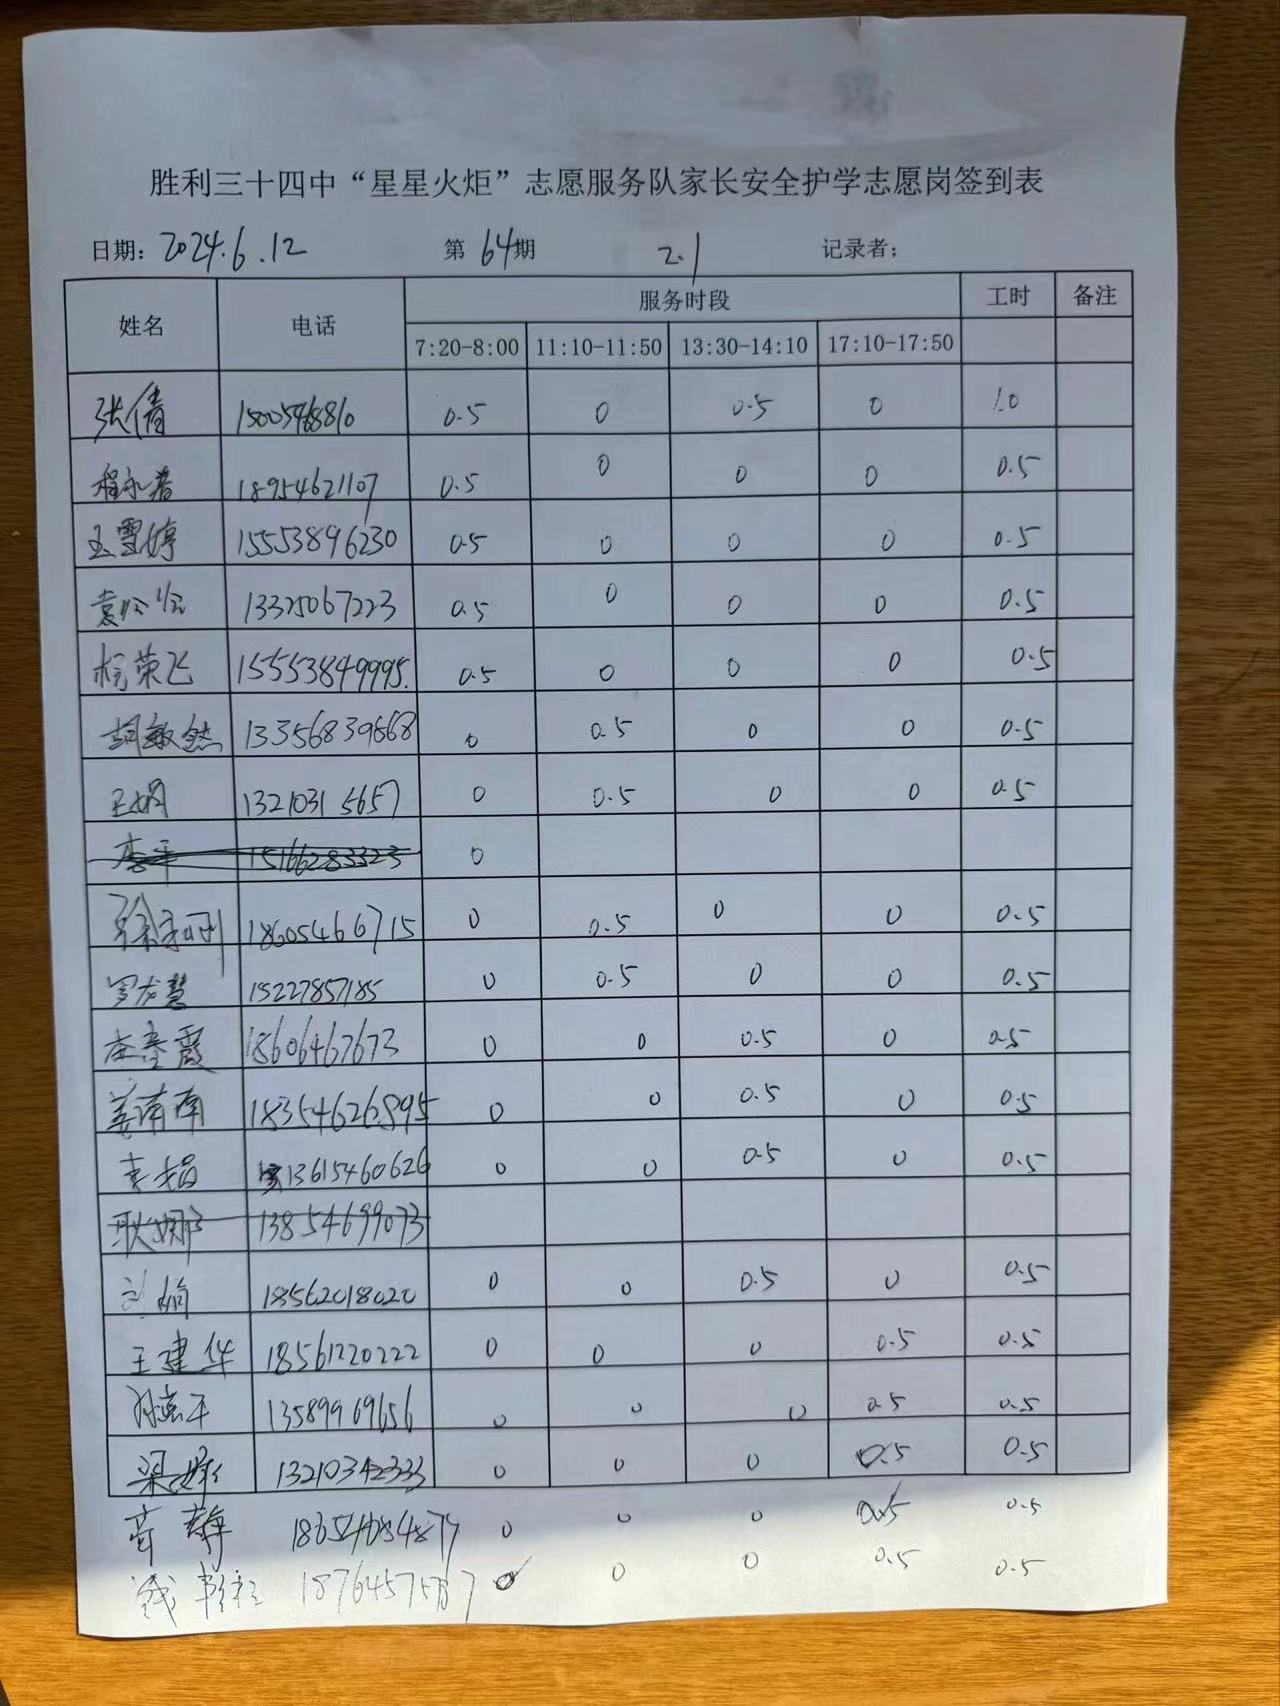 胜利三十四中“星星火炬”志愿服务队家长安全护学志愿岗签到表
日期: 2024.6.12 第 64 期 2.1 记录者:
姓名 电话 服务时段 工时 备注
7:20-8:00 11:10-11:50 13:30-14:10 17:10-17:50
张倩 0.5 0 0.5 0 1.0
18954621107 0.5 0 0 0 0.5
王雪婷 15553896230 0.5 0 0 0 0.5
袁 13325067223 0.5 0 0 0 0.5
荣飞 15553849995. 0.5 0 0 0 0.5
胡敏然 13356839668 0 0.5 0 0 0.5
王娟 13210315657 0 0.5 0 0 0.5
李平 15166283323 0
18605466715 0 0.5 0 0 0.5
罗 慧 15227857185 0 0.5 0 0 0.5
霞 18606467673 0 0 0.5 0 0.5
姜南南 18354626895 0 0 0.5 0 0.5
李娟 13615460626 0 0 0.5 0 0.5
耿娜 13854699073
刘娟 18562018020 0 0 0.5 0 0.5
王建华 18561220222 0 0 0 0.5 0.5
平 13589969656 0 0 0 0.5 0.5
梁 13210342333 0 0 0 0.5 0.5
静 0 0 0 0.5 0.5
钱 0 0 0 0.5 0.5